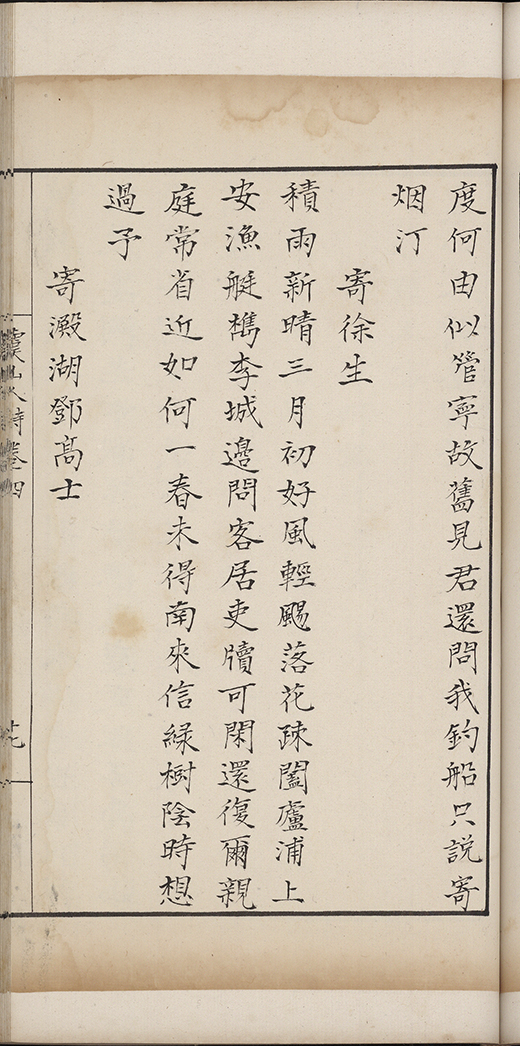 度何由似管寧故舊見君還問我釣船只說寄
烟汀
寄徐生
積雨新晴三月初好風輕颺落花踈闔廬浦上
安漁艇檇李城邉問客居吏牘可閑還復爾親
庭常省近如何一春未得南來信緑樹陰時想
過予
寄澱湖鄧髙士
山人詩卷四